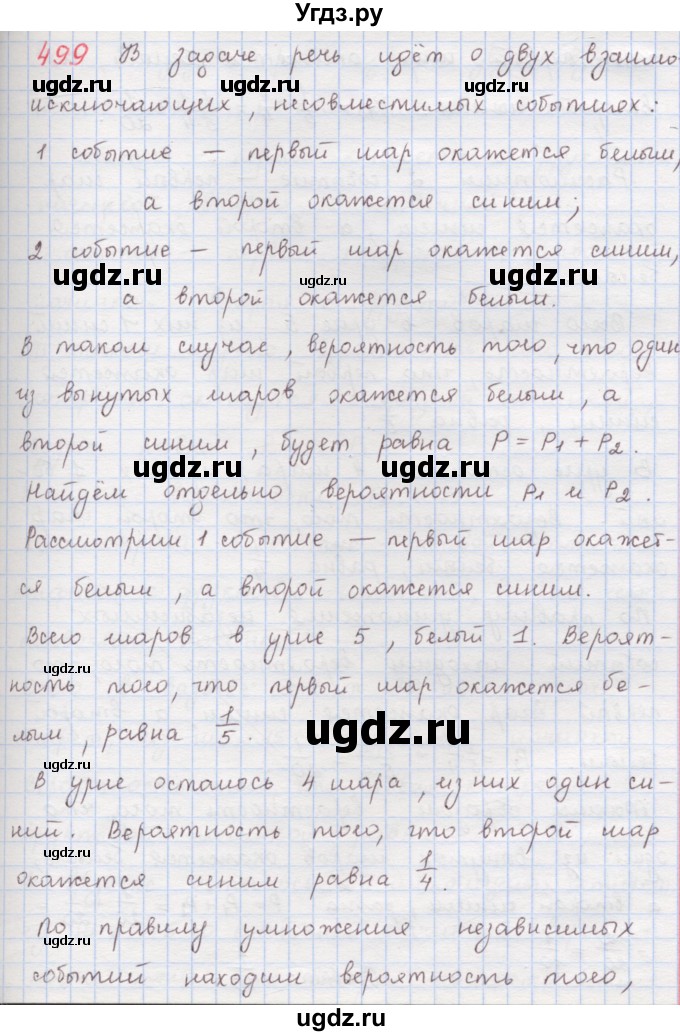 Угдз.ру
499 В задаче речь идёт о двух взаимо-
ugdz.ru ugdz.ru
исключающих, несовместимых событиях:
1 событие — первый шар окажется белым,
а второй окажется синим;
ugdz.ru
2 событие — первый шар окажется синим,
ugdz.ru ugdz.ru
а второй окажется белым.
В таком случае, вероятность того, что один
ugdz.ru
из вынутых шаров окажется белым, а
второй синим, будет равна P = P1 + P2.
ugdz.ru ugdz.ru
Найдём отдельно вероятности P1 и P2.
Рассмотрим 1 событие — первый шар окажет-
ugdz.ru
ся белым, а второй окажется синим.
Всего шаров в урне 5, белый 1. Вероят-
ugdz.ru ugdz.ru
ность того, что первый шар окажется бе-
лым, равна 1/5.
ugdz.ru
В урне осталось 4 шара, из них один си-
ugdz.ru
ний. Вероятность того, что второй шар
ugdz.ru
окажется синим равна 1/4.
По правилу умножения независимых
ugdz.ru ugdz.ru
событий находим вероятность того,
ugdz.ru